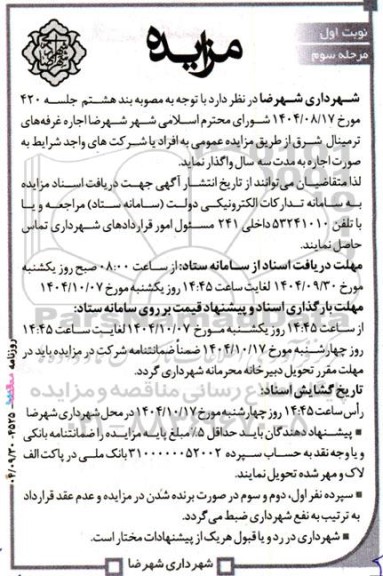 نوبت اول
مرحله سوم
مزایده
شهرداری شهرضا در نظر دارد با توجه به مصوبه بند هشتم جلسه ۴۲۰
مورخ ۱۴۰۴/۰۸/۱۷ شورای محترم اسلامی شهر شهرضا اجاره غرفه‌های
ترمینال شرق از طریق مزایده عمومی به افراد یا شرکت های واجد شرایط به
صورت اجاره به مدت سه سال واگذار نماید.
لذا متقاضیان می‌توانند از تاریخ انتشار آگهی جهت دریافت اسناد مزایده
به سامانه تدارکات الکترونیکی دولت (سامانه ستاد) مراجعه و یا
با تلفن ۵۳۲۴۱۰۱۰ داخلی ۲۴۱ مسئول امور قراردادهای شهرداری تماس
حاصل نمایند.
مهلت دریافت اسناد از سامانه ستاد: از ساعت ۰۸:۰۰ صبح روز یکشنبه
مورخ ۱۴۰۴/۰۹/۳۰ لغایت ساعت ۱۴:۴۵ روز یکشنبه مورخ ۱۴۰۴/۱۰/۰۷
مهلت بارگذاری اسناد و پیشنهاد قیمت بر روی سامانه ستاد:
از ساعت ۱۴:۴۵ روز یکشنبه مورخ ۱۴۰۴/۱۰/۰۷ لغایت ساعت ۱۴:۴۵
روز چهارشنبه مورخ ۱۴۰۴/۱۰/۱۷ ضمناً ضمانتنامه شرکت در مزایده باید در
مهلت مقرر تحویل دبیرخانه محرمانه شهرداری گردد.
تاریخ گشایش اسناد:
رأس ساعت ۱۴:۴۵ روز چهارشنبه مورخ ۱۴۰۴/۱۰/۱۷ در محل شهرداری شهرضا
■ پیشنهاد دهندگان باید حداقل ۵٪ مبلغ پایه مزایده را ضمانتنامه بانکی
و یا وجه نقد به حساب سپرده ۳۱۰۰۰۰۰۰۵۲۰۰۲ بانک ملی در پاکت الف
لاک و مهر شده تحویل نمایند.
■ سپرده نفر اول، دوم و سوم در صورت برنده شدن در مزایده و عدم عقد قرارداد
به ترتیب به نفع شهرداری ضبط می‌گردد.
■ شهرداری در رد و یا قبول هریک از پیشنهادات مختار است.
شهرداری شهرضا
روزنامه
۰۴/۰۹/۳۰